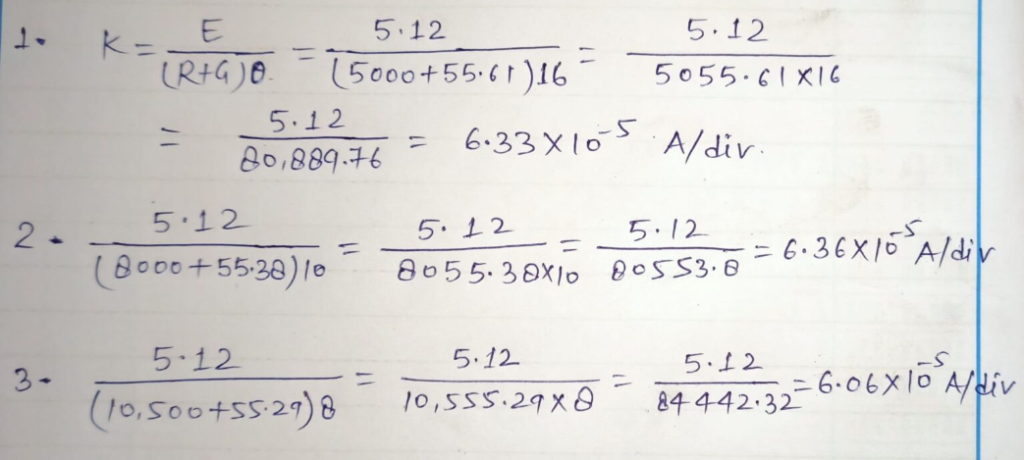 1. K = E/(R+G)θ = 5.12/(5000+55.61)16 = 5.12/5055.61×16
= 5.12/80,889.76 = 6.33×10⁻⁵ A/div.
2. 5.12/(8000+55.38)10 = 5.12/8055.38×10 = 5.12/80553.8 = 6.36×10⁻⁵ A/div
3. 5.12/(10,500+55.29)8 = 5.12/10,555.29×8 = 5.12/84442.32 = 6.06×10⁻⁵ A/div